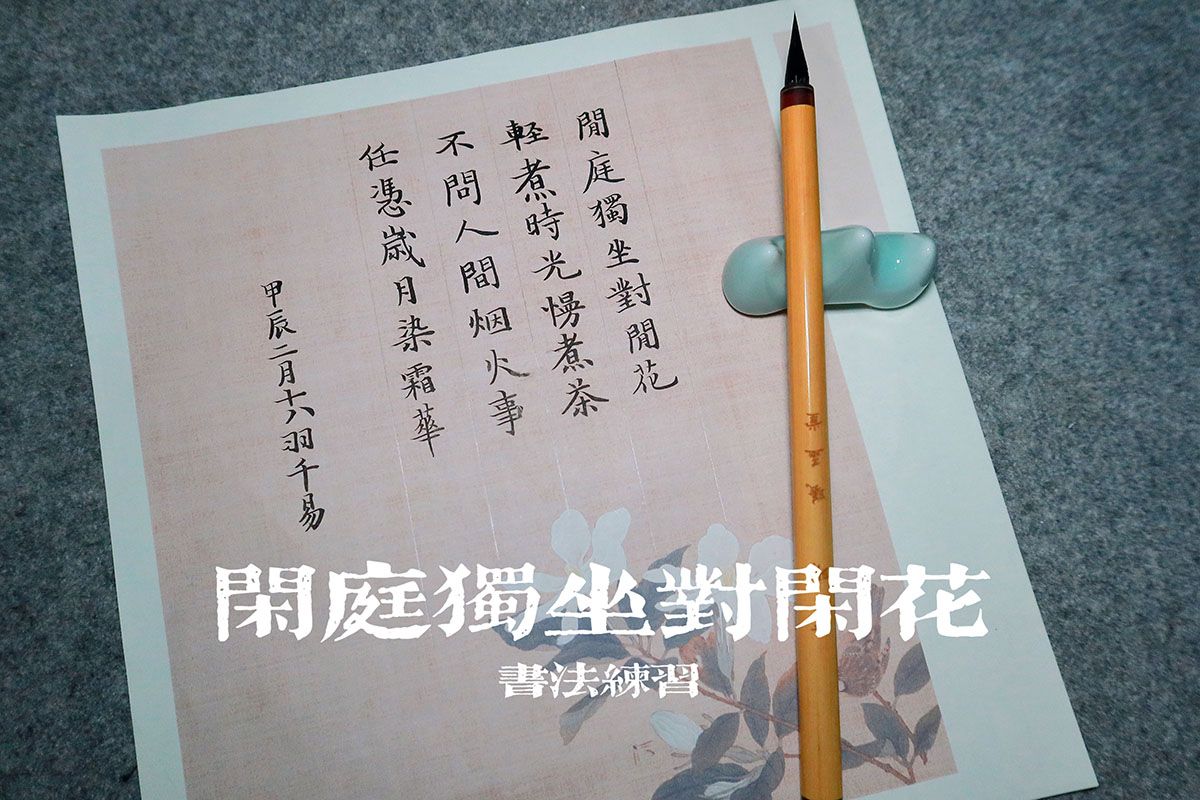 閒庭獨坐對閒花
輕煮時光慢煮茶
不問人間烟火事
任憑歲月染霜華
甲辰二月十八羽千易
閑庭獨坐對閑花
書法練習